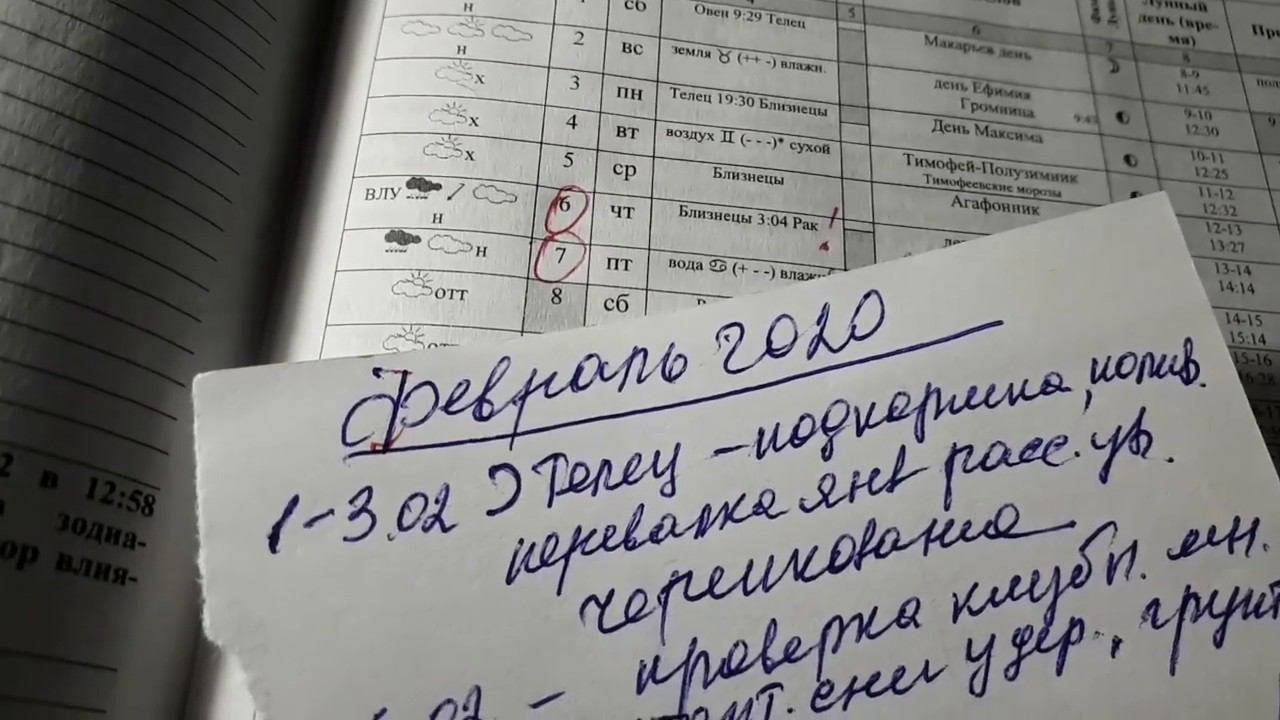 н
сб
Овен 9:29 Телец
5
6
7
8
Лунный
день (вре-
мя)
н
2
вс
земля ♉ (++ -) влажн.
Макарьев день
8-9
11:45
х
3
пн
Телец 19:30 Близнецы
день Ефимия
Громница
9-10
12:30
9
х
4
вт
воздух ♊ (- - -)* сухой
День Максима
10-11
12:25
х
5
ср
Близнецы
Тимофей-Полузимник
Тимофеевские морозы
11-12
12:32
ВЛУ
н
6
чт
Близнецы 3:04 Рак !
Агафонник
12-13
13:27
н
7
пт
вода ♋ (+ - -) влажн
13-14
14:14
отт
8
сб
14-15
15:14
15-16
2 в 12:58
зодиа-
ор влия-
Февраль 2020
1-3.02 Телец - подкормка, полив.
перевалка янв расс. ув.
черенкование
проверка клубн. мн.
02 - снег у дер., грунт